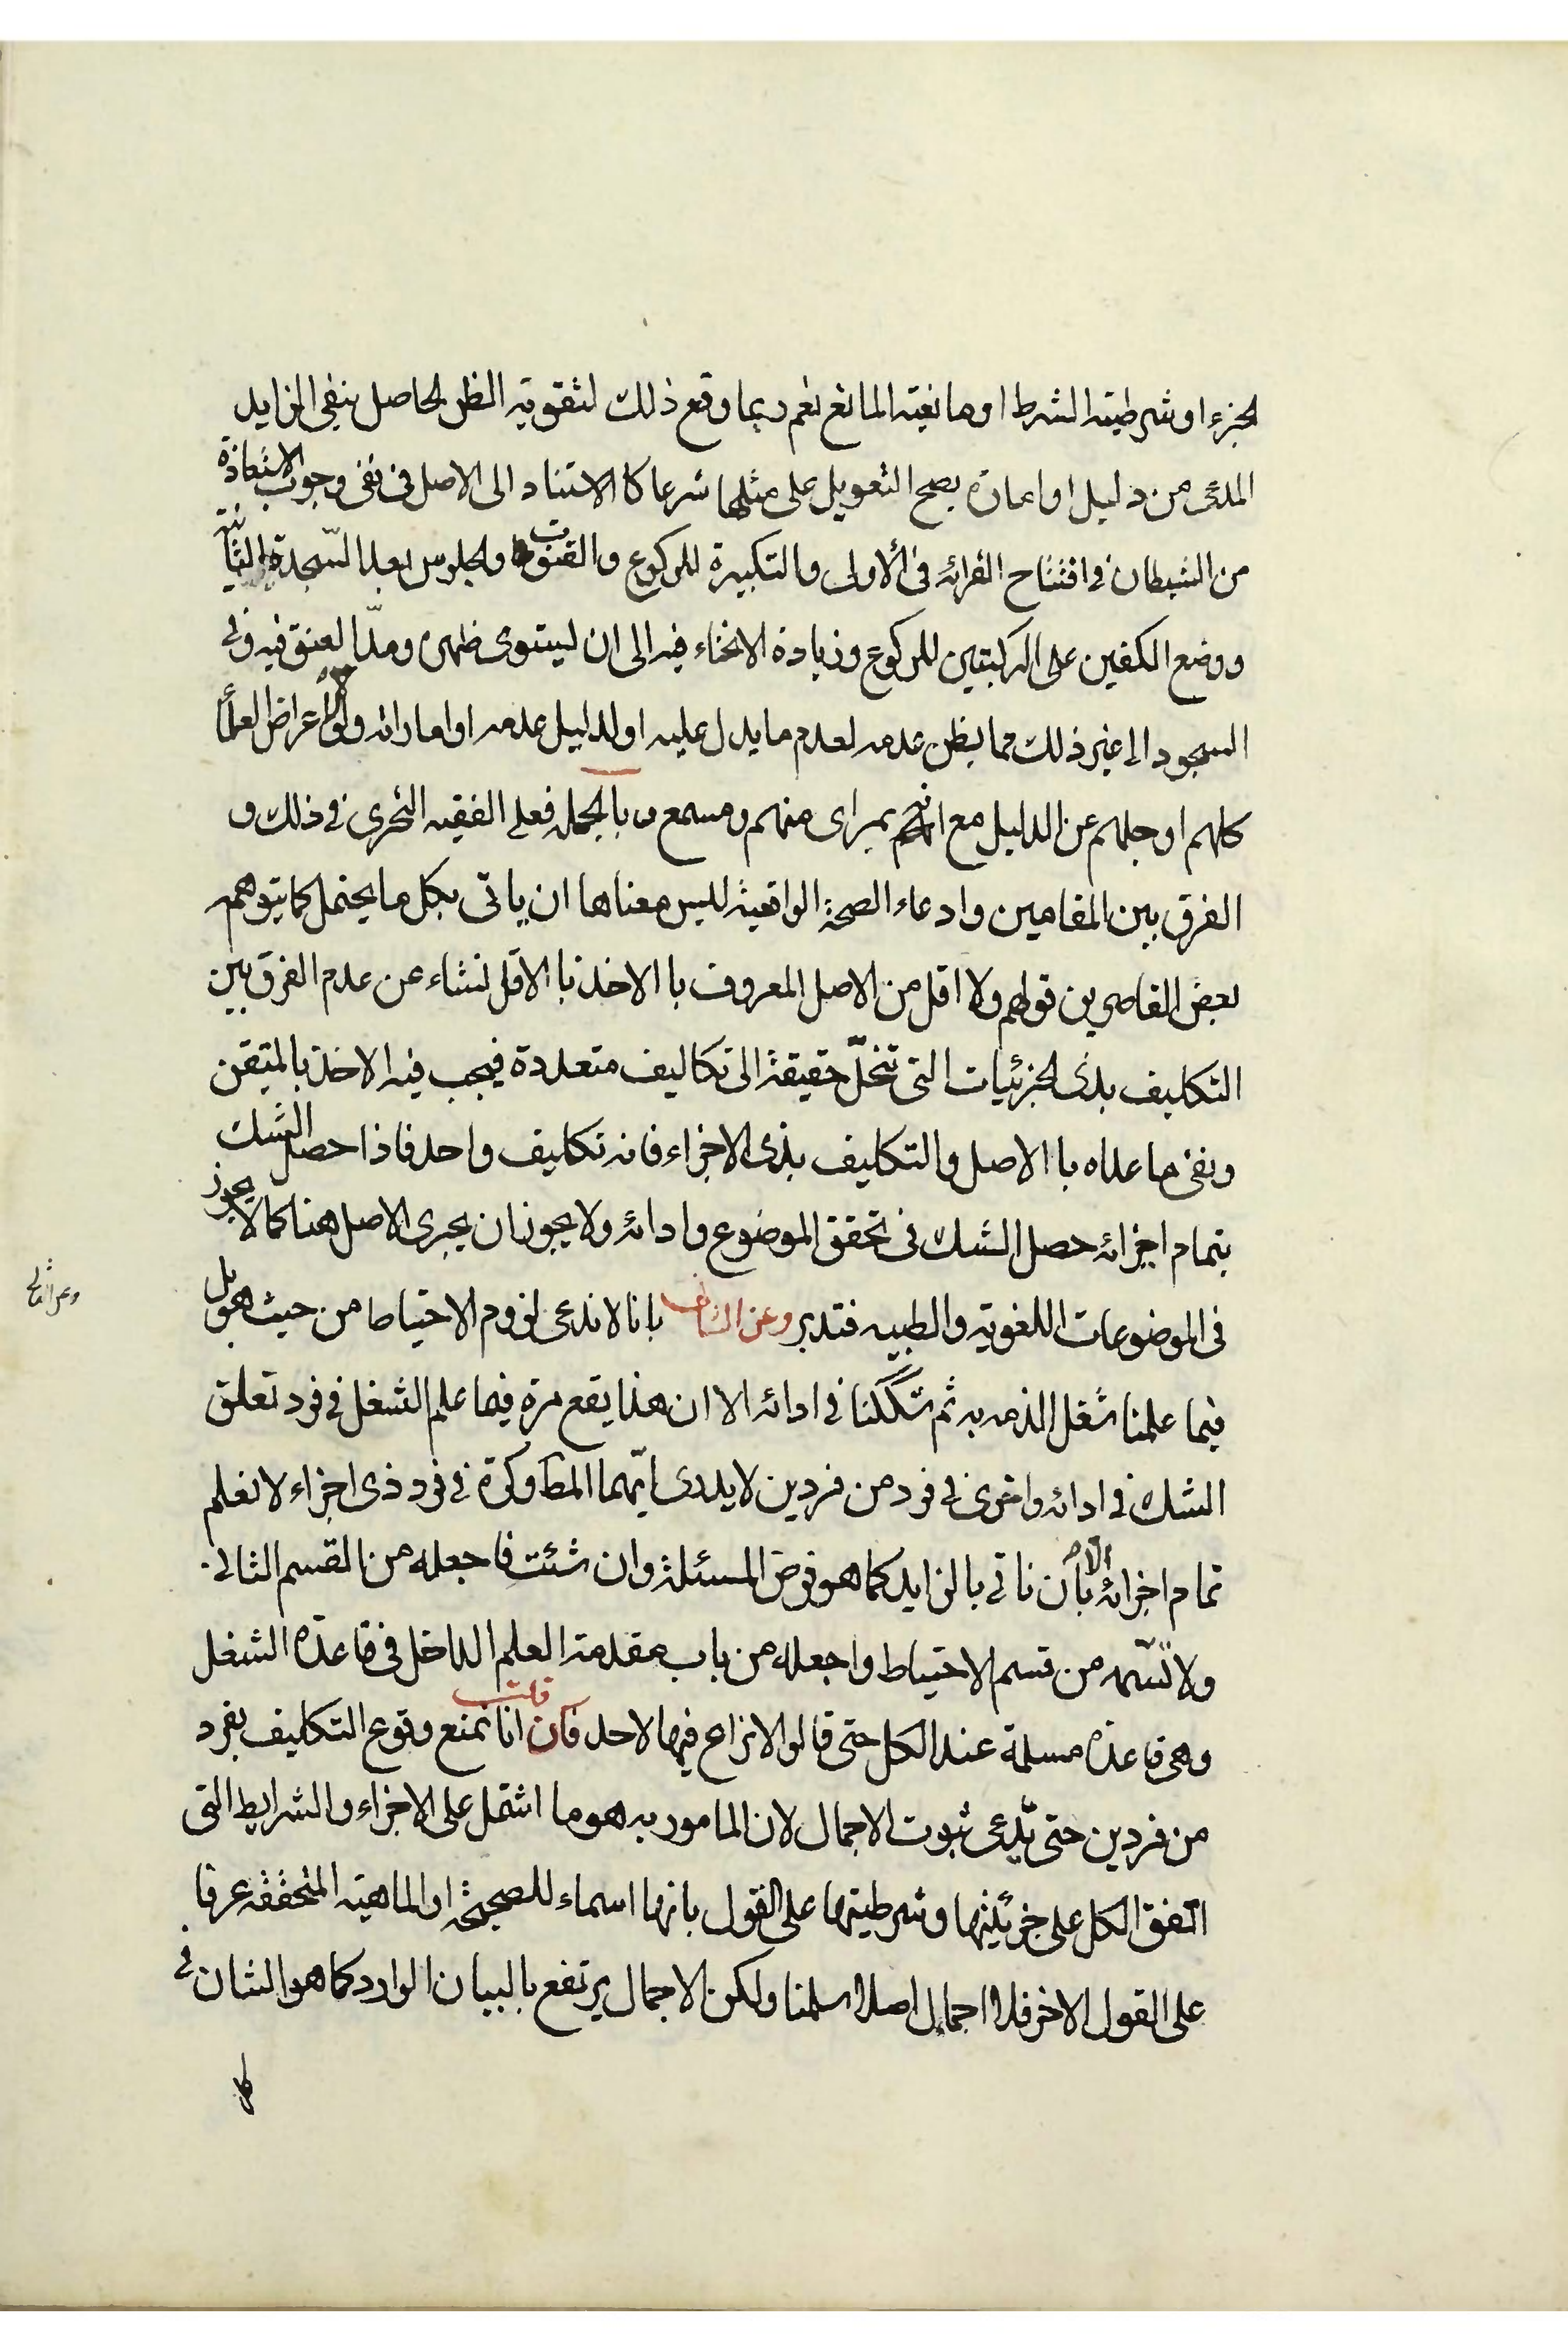 الجزء او شرطيته الشرط او مانعيته المانع نعم ربما وقع ذلك لتقويته الظن الحاصل بنفى الزايد
المدعى من دليل او امارة يصح التعويل على مثلها شرعا كا الاستناد الى الاصل فى نفى وجوب الاستعاذة
من الشيطان فى افتتاح القرائه فى الأولى والتكبيرة للركوع والقنوت والجلوس بعد السّجدة الثانية
ووضع الكفين على الركبتين للركوع وزيادة الانحناء فيه الى ان ليستوى ظهره ومدّ العنق فيه وفى
السجود الى غير ذلك مما يظن عدمه لعدم ما يدل عليه او لدليل عدمه او اماراته ولو اعراض العلمأ
كلهم او جلهم عن الدليل مع انهم بمراى منهم ومسمع وبالجمله فعلى الفقيه التحرى فى ذلك و
الفرق بين المقامين وادعاء الصحة الواقعية ليس معناها ان ياتى بكل ما يحتمل كما يتوهمه
بعض القاصرين قولهم ولا اقل من الاصل المعروف با الاخذ با الاقل نشاء عن عدم الفرق بين
التكليف بذى الجزئيات التى تنحلّ حقيقة الى تكاليف متعددة فيجب فيه الاخذ بالمتيقن
ونفى ما عداه با الاصل والتكليف بذى الاجزاء فانه تكليف واحد فاذا حصل الشك
بتمام اجزائه حصل الشك فى تحقق الموضوع وادائه ولا يجوز ان يجرى الاصل هنا كما لا يجوز
فى الموضوعات اللغويه والطبيه فتدبر وعن الثالث بانا لا ندعى لزوم الاحتياط من حيث هو بل
وعن الثالث
فيما علمنا شغل الذمه به ثم شككنا فى ادائه الا ان هذا يقع مرة فيما علم الشغل فى فرد تعلق
الشك فى ادائه واخرى فى فرد من فردين لا يدرى ايّهما المط وكرّة فى فرد ذى اجزاء لا نعلم
تمام اجزائه الا بأن ناتى بالزايد كما هو فرض المسئلة وان شئت فاجعله من القسم الثانى
ولا تسّمه من قسم الاحتياط واجعله من باب مقدمة العلم الداخل فى قاعدة الشغل
وهى قاعدة مسلمة عند الكل حتى قالوا لا نزاع فيها لاحد فان قلت انا نمنع وقوع التكليف بفرد
من فردين حتى يدّعى ثبوت الاجمال لان المامور به هو ما اشتمل على الاجزاء والشرايط التى
اتفق الكل على جزئيتها وشرطيتها على القول بانها اسماء للصحيحة او الماهيته المتحققه عرفا
على القول الاخر فلا اجمال اصلا سلمنا ولكن الاجمال يرتفع بالبيان الوارد كما هو الشان فى
كل